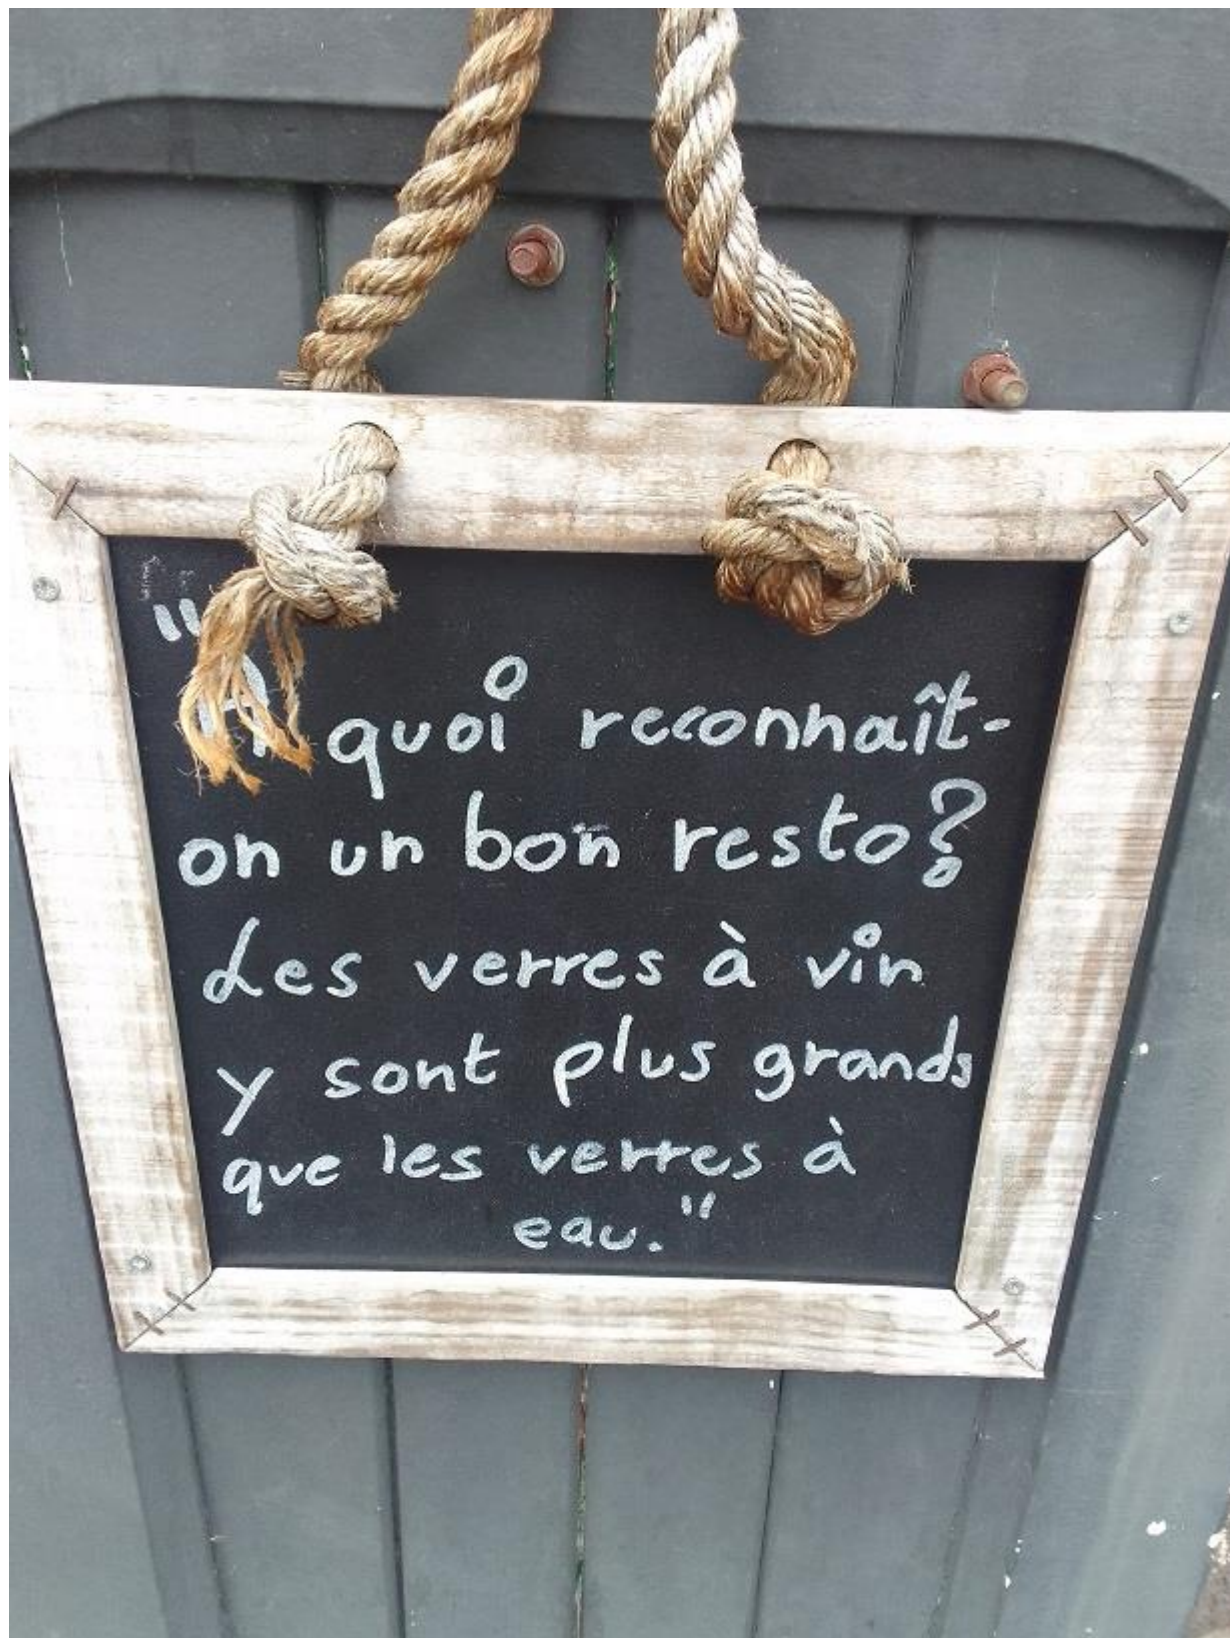 "A quoi reconnaît-
on un bon resto?
Les verres à vin
y sont plus grands
que les verres à
eau."